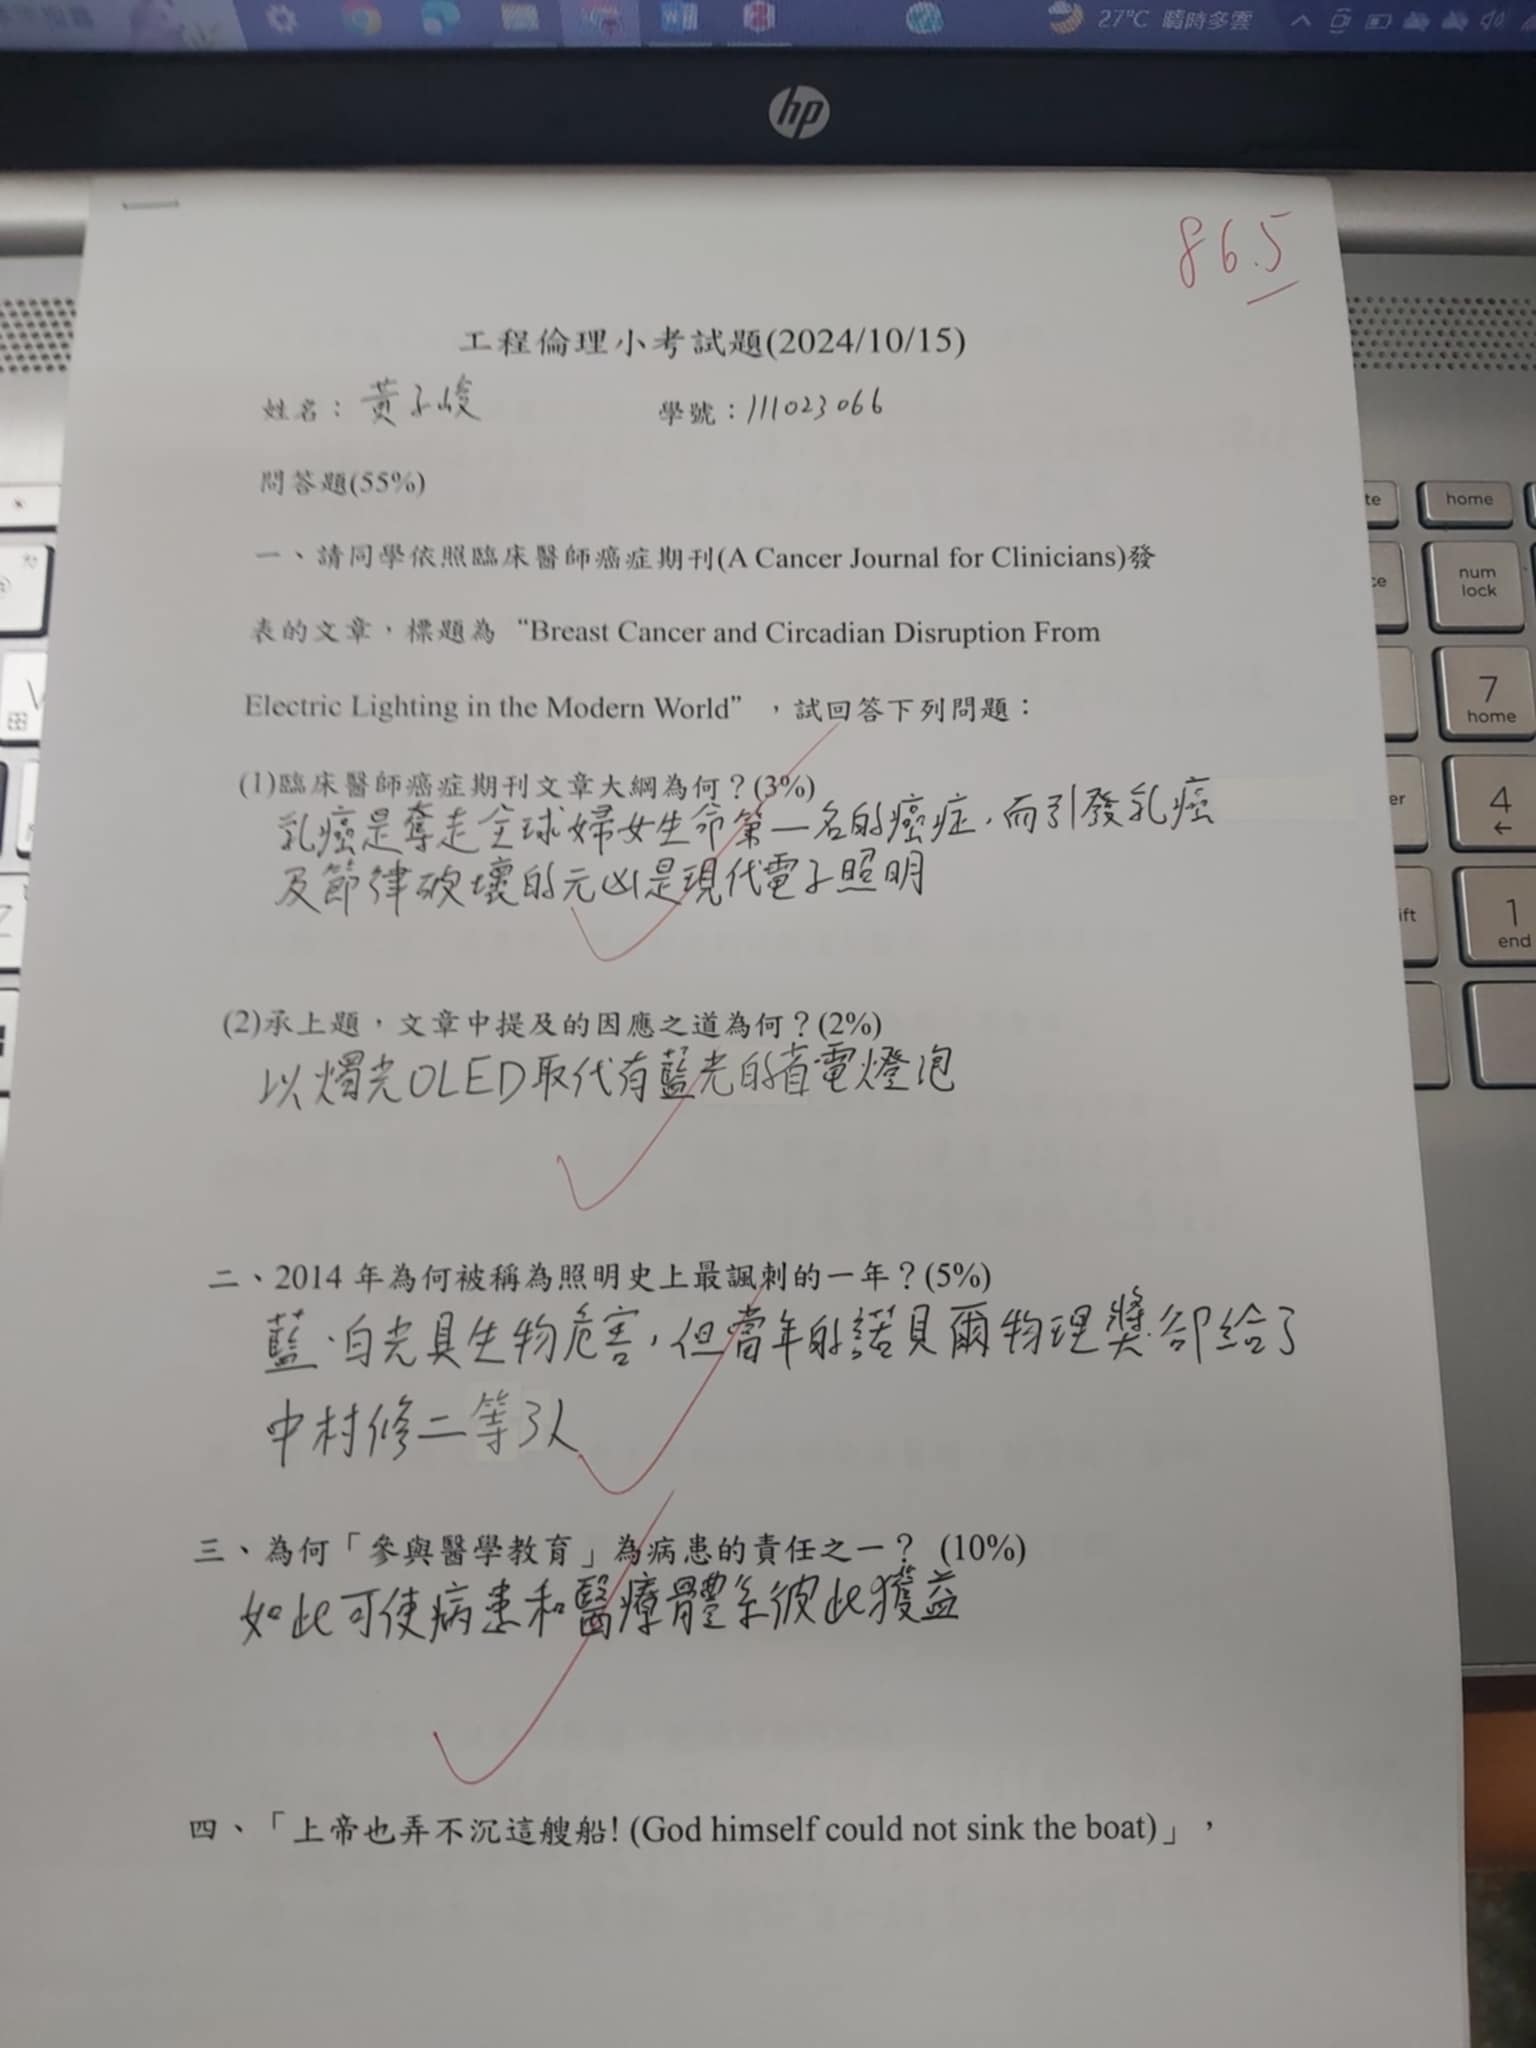 27°C 晴時多雲
hp
86.5
工程倫理小考試題(2024/10/15)
姓名：黃子峻 學號：111023066
問答題(55%)
一、請同學依照臨床醫師癌症期刊(A Cancer Journal for Clinicians)發
表的文章，標題為“Breast Cancer and Circadian Disruption From
Electric Lighting in the Modern World”，試回答下列問題：
(1)臨床醫師癌症期刊文章大綱為何？(3%)
乳癌是奪走全球婦女生命第一名的癌症，而引發乳癌
及節律破壞的元凶是現代電子照明
(2)承上題，文章中提及的因應之道為何？(2%)
以燭光OLED取代有藍光的省電燈泡
二、2014 年為何被稱為照明史上最諷刺的一年？(5%)
藍、白光具生物危害，但當年的諾貝爾物理獎卻給了
中村修二等3人
三、為何「參與醫學教育」為病患的責任之一？ (10%)
如此可使病患和醫療體系彼此獲益
四、「上帝也弄不沉這艘船! (God himself could not sink the boat)」，
home
num
lock
7
home
4
1
end